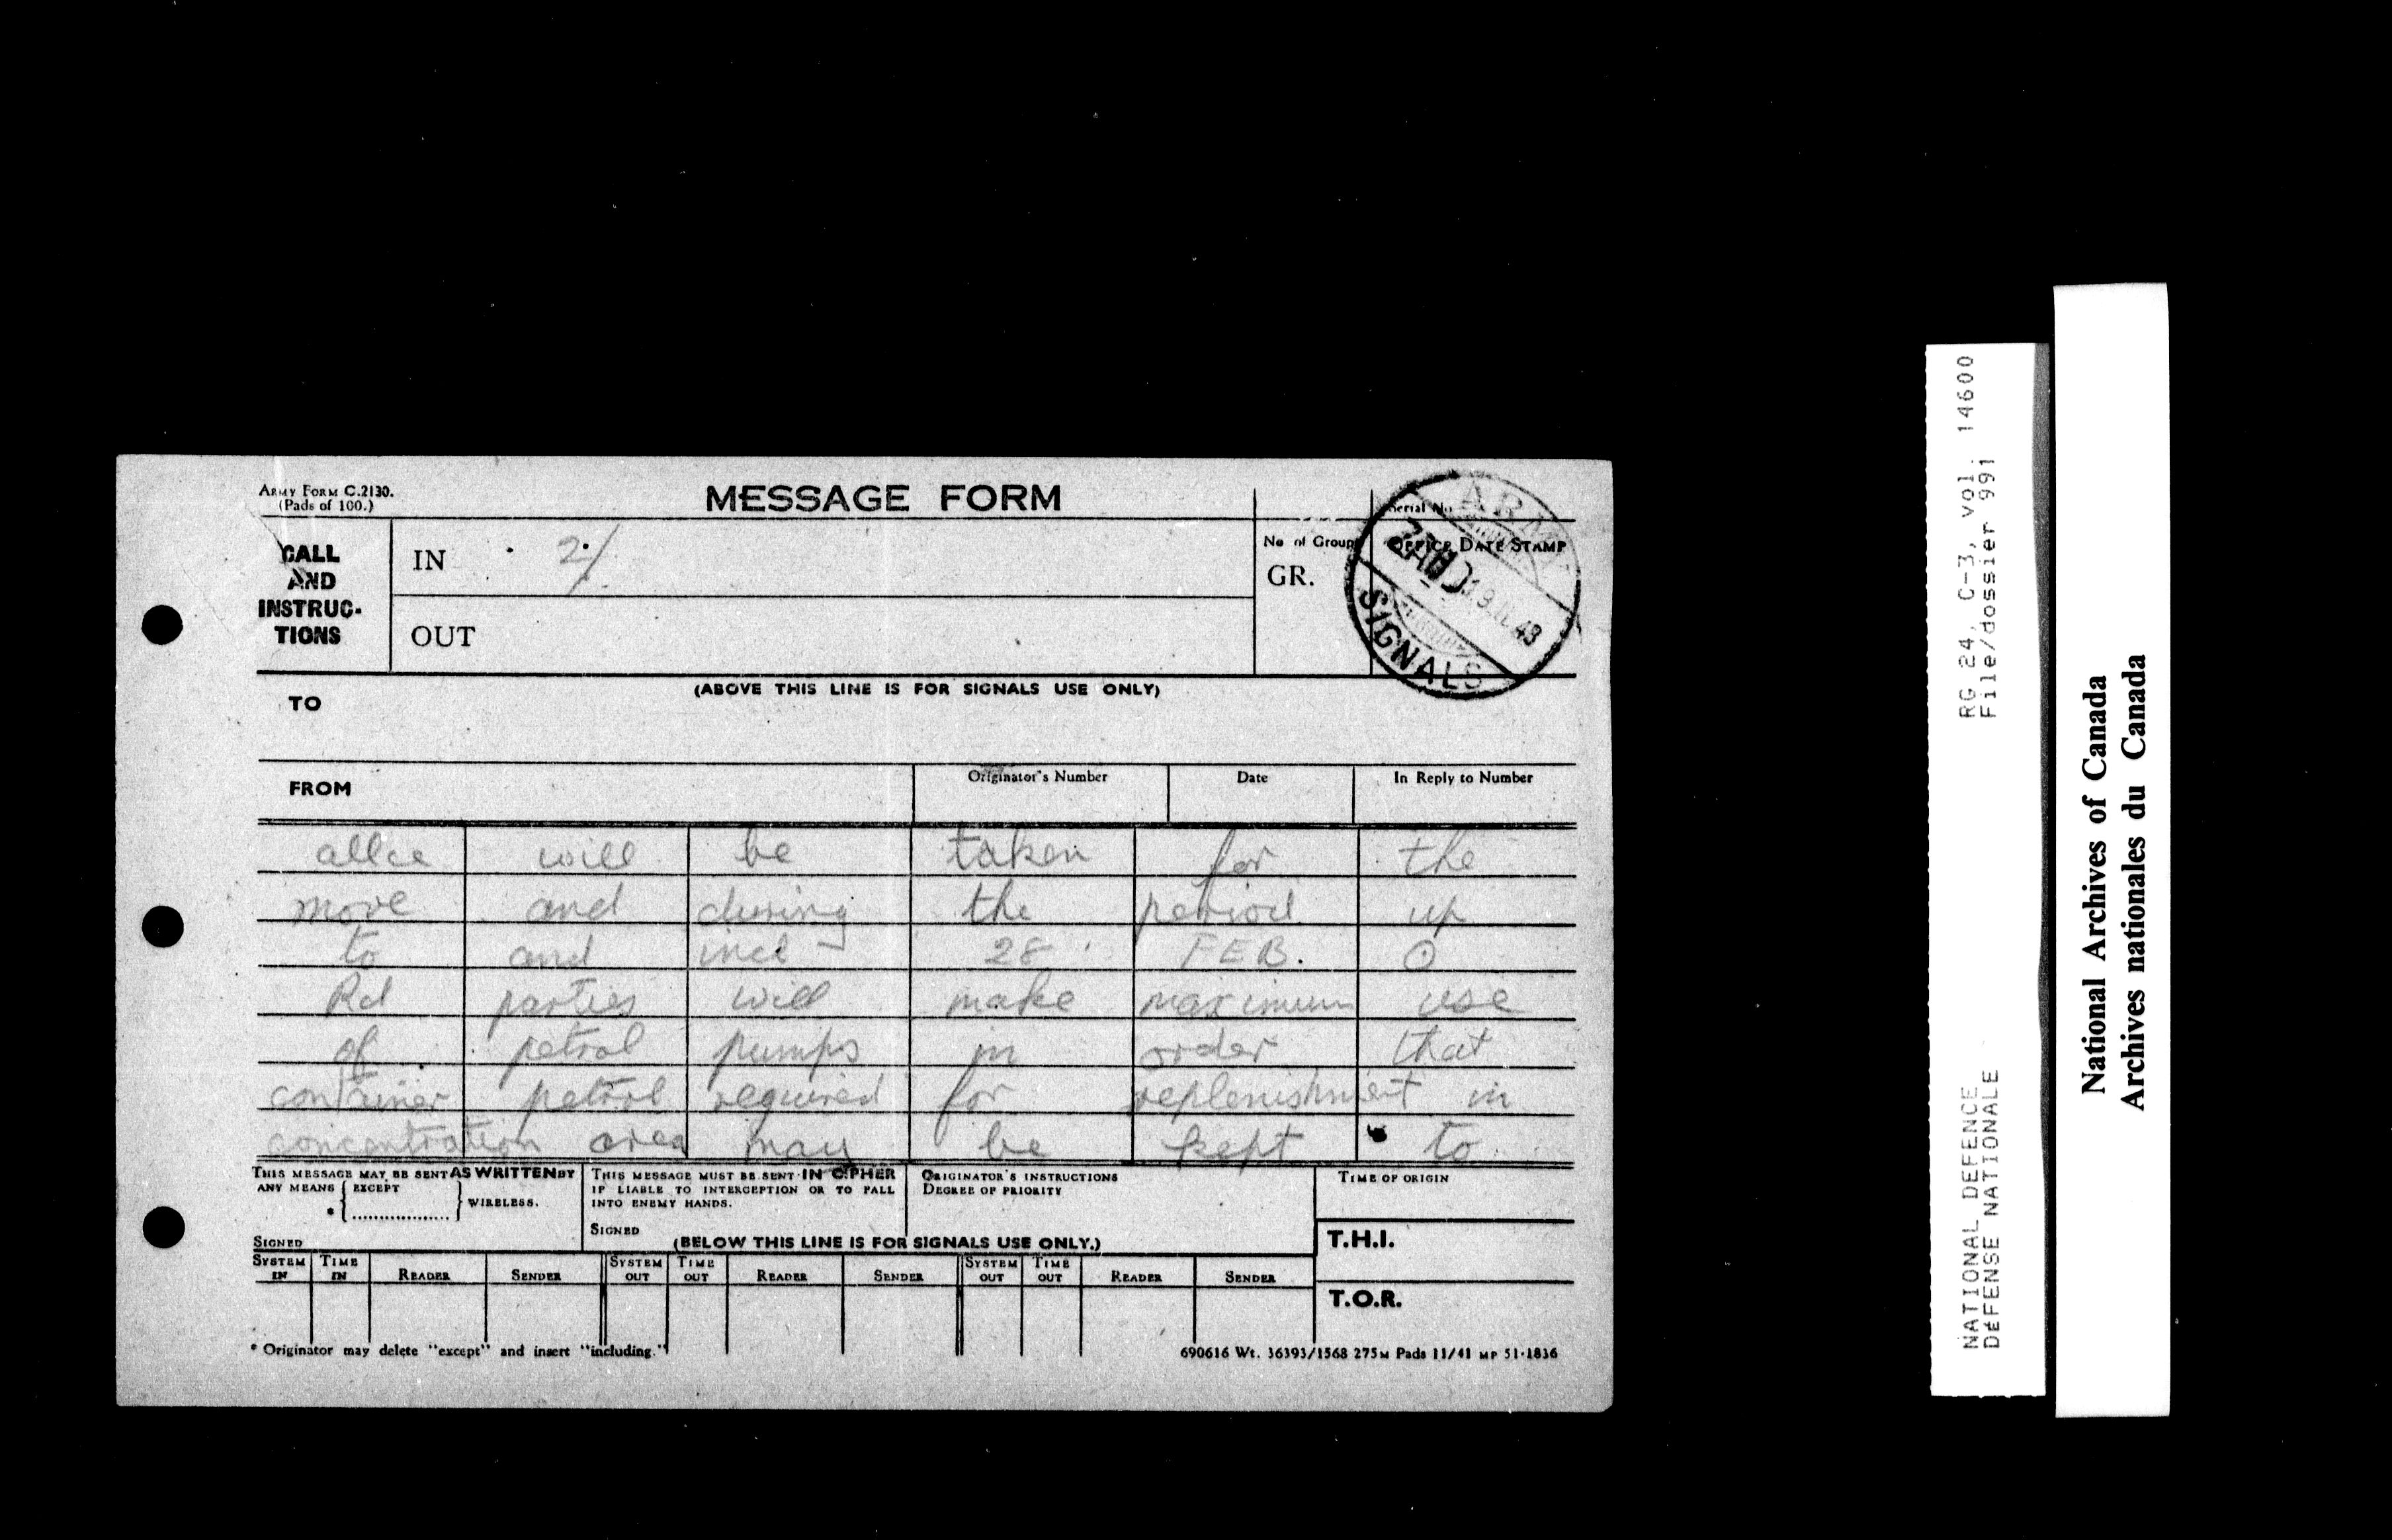 ARMY FORM C.2130.
(Pads of 100.)
MESSAGE FORM
Serial No.
CALL AND INSTRUC-TIONS
IN 2/
No. of Groups
GR.
OFFICE DATE STAMP
ARMY SIGNALS 19 43
OUT
(ABOVE THIS LINE IS FOR SIGNALS USE ONLY)
TO
FROM
Originator's Number
Date
In Reply to Number
allce will be taken for the
move and during the period up
to and incl 28 FEB. O
Rd parties will make maximum use
of petrol pumps in order that
container petrol required for replenishment in
concentration area may be kept to
THIS MESSAGE MAY BE SENT AS WRITTEN BY
ANY MEANS { EXCEPT
* { .................. } WIRELESS.
SIGNED
THIS MESSAGE MUST BE SENT IN CIPHER
IF LIABLE TO INTERCEPTION OR TO FALL
INTO ENEMY HANDS.
SIGNED
ORIGINATOR'S INSTRUCTIONS
DEGREE OF PRIORITY
TIME OF ORIGIN
(BELOW THIS LINE IS FOR SIGNALS USE ONLY.)
T.H.I.
SYSTEM IN TIME IN READER SENDER SYSTEM OUT TIME OUT READER SENDER SYSTEM OUT TIME OUT READER SENDER
T.O.R.
* Originator may delete "except" and insert "including."
690616 Wt. 36393/1568 275M Pads 11/41 MP 51-1836
NATIONAL DEFENCE RG 24, C-3, vol. 14600
DEFENSE NATIONALE File/dossier 991
National Archives of Canada
Archives nationales du Canada